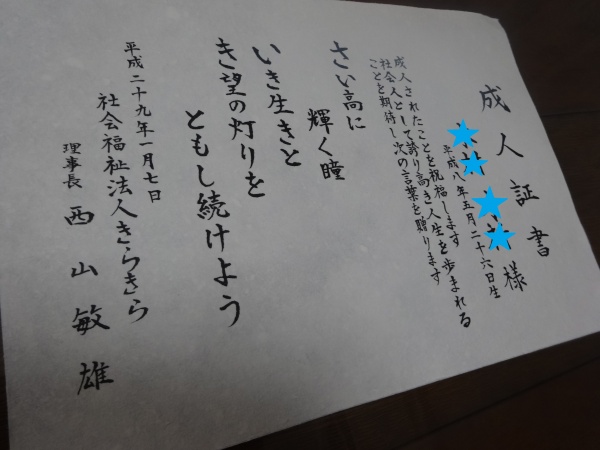 成人証書
様
平成八年五月二十六日生
成人されたことを祝福します
社会人として誇り高き人生を歩まれる
ことを期待し次の言葉を贈ります
さい高に
輝く瞳
いき生きと
き望の灯りを
ともし続けよう
平成二十九年一月七日
社会福祉法人きらきら
理事長 西山敏雄